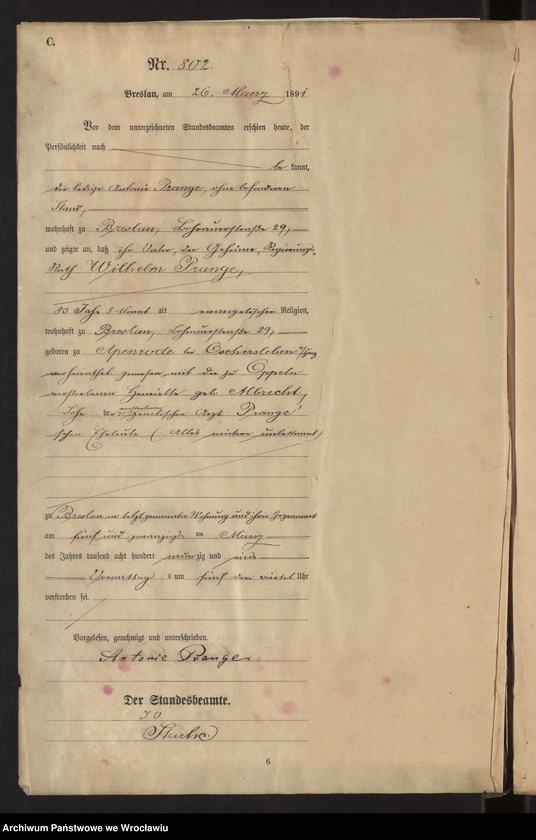 C.
Nr. 802
Breslau, am 26. Maerz 1891
Vor dem unterzeichneten Standesbeamten erschien heute, der
Persönlichkeit nach
be kannt,
die ledige Antonie Prange, ohne besonderen
Stand,
wohnhaft zu Breslau, Lohestraße 29,
und zeigte an, daß ihr Vater, der Geheime Regierungs-
Rath Wilhelm Prange,
80 Jahr 8 Monat alt evangelischer Religion,
wohnhaft zu Breslau, 29,
geboren zu bei Oschersleben
verheirathet gewesen mit der zu Oppeln
verstorbenen Henriette geb. Albrecht,
Sohn der verstorbenen Arzt Prange'
schen Eheleute (Alles weitere unbekannt)
zu Breslau in letztgenannter Wohnung und ihrer Gegenwart
am fünf und zwanzigsten Maerz
des Jahres tausend acht hundert neunzig und eins
Vormittag s um fünf drei viertel Uhr
verstorben sei.
Vorgelesen, genehmigt und unterschrieben.
Antonie Prange
Der Standesbeamte.
6
Archiwum Państwowe we Wrocławiu